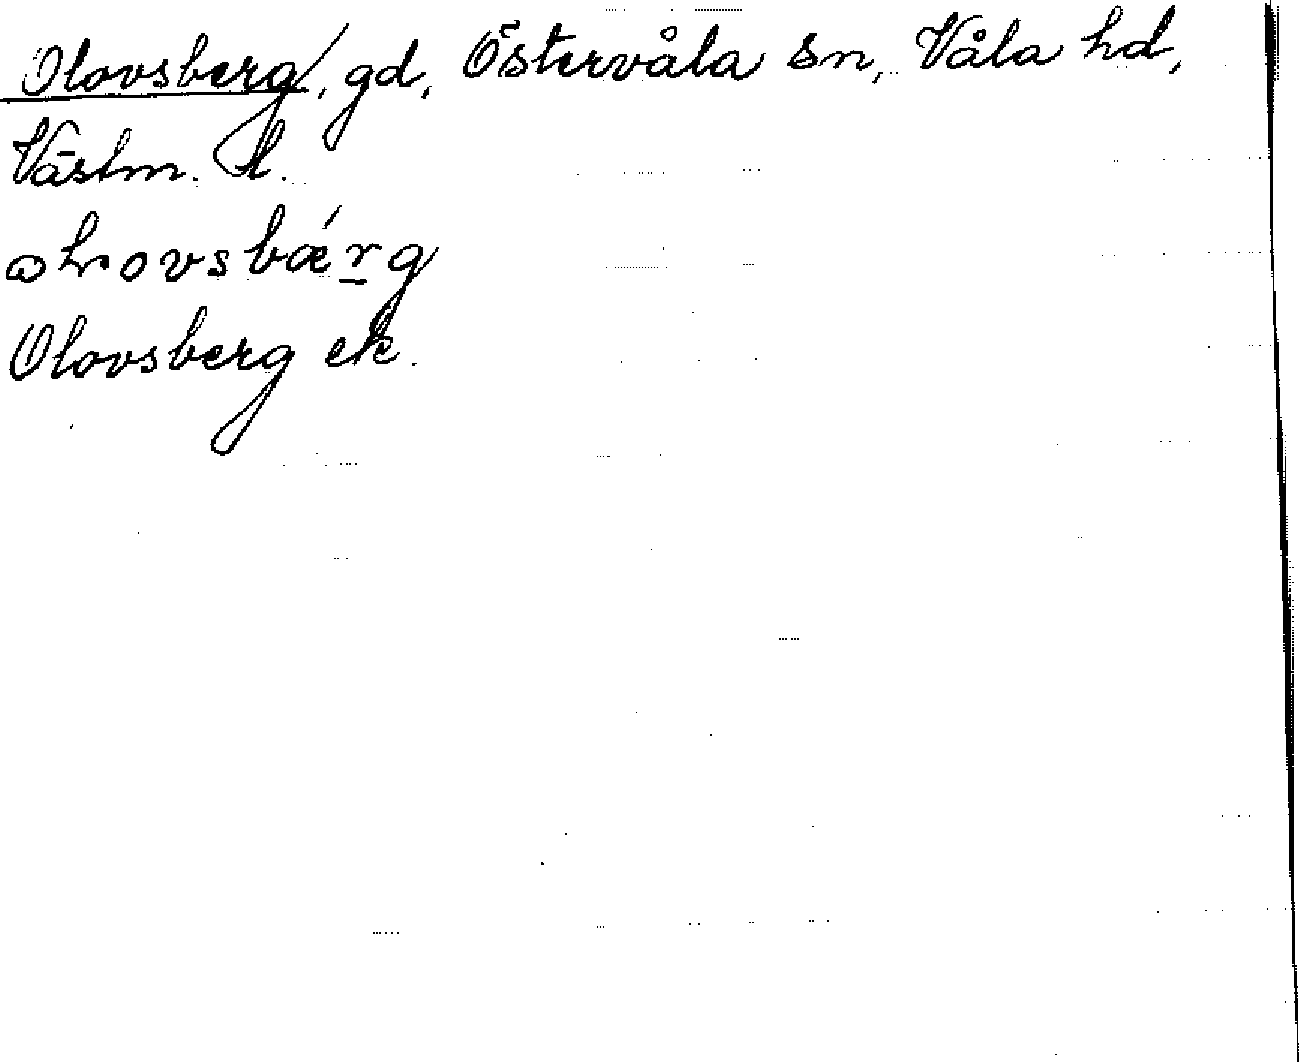 Olovsberg, gd, Östervåla sn, Våla hd,
Västm. l.
Olovsberg ek.